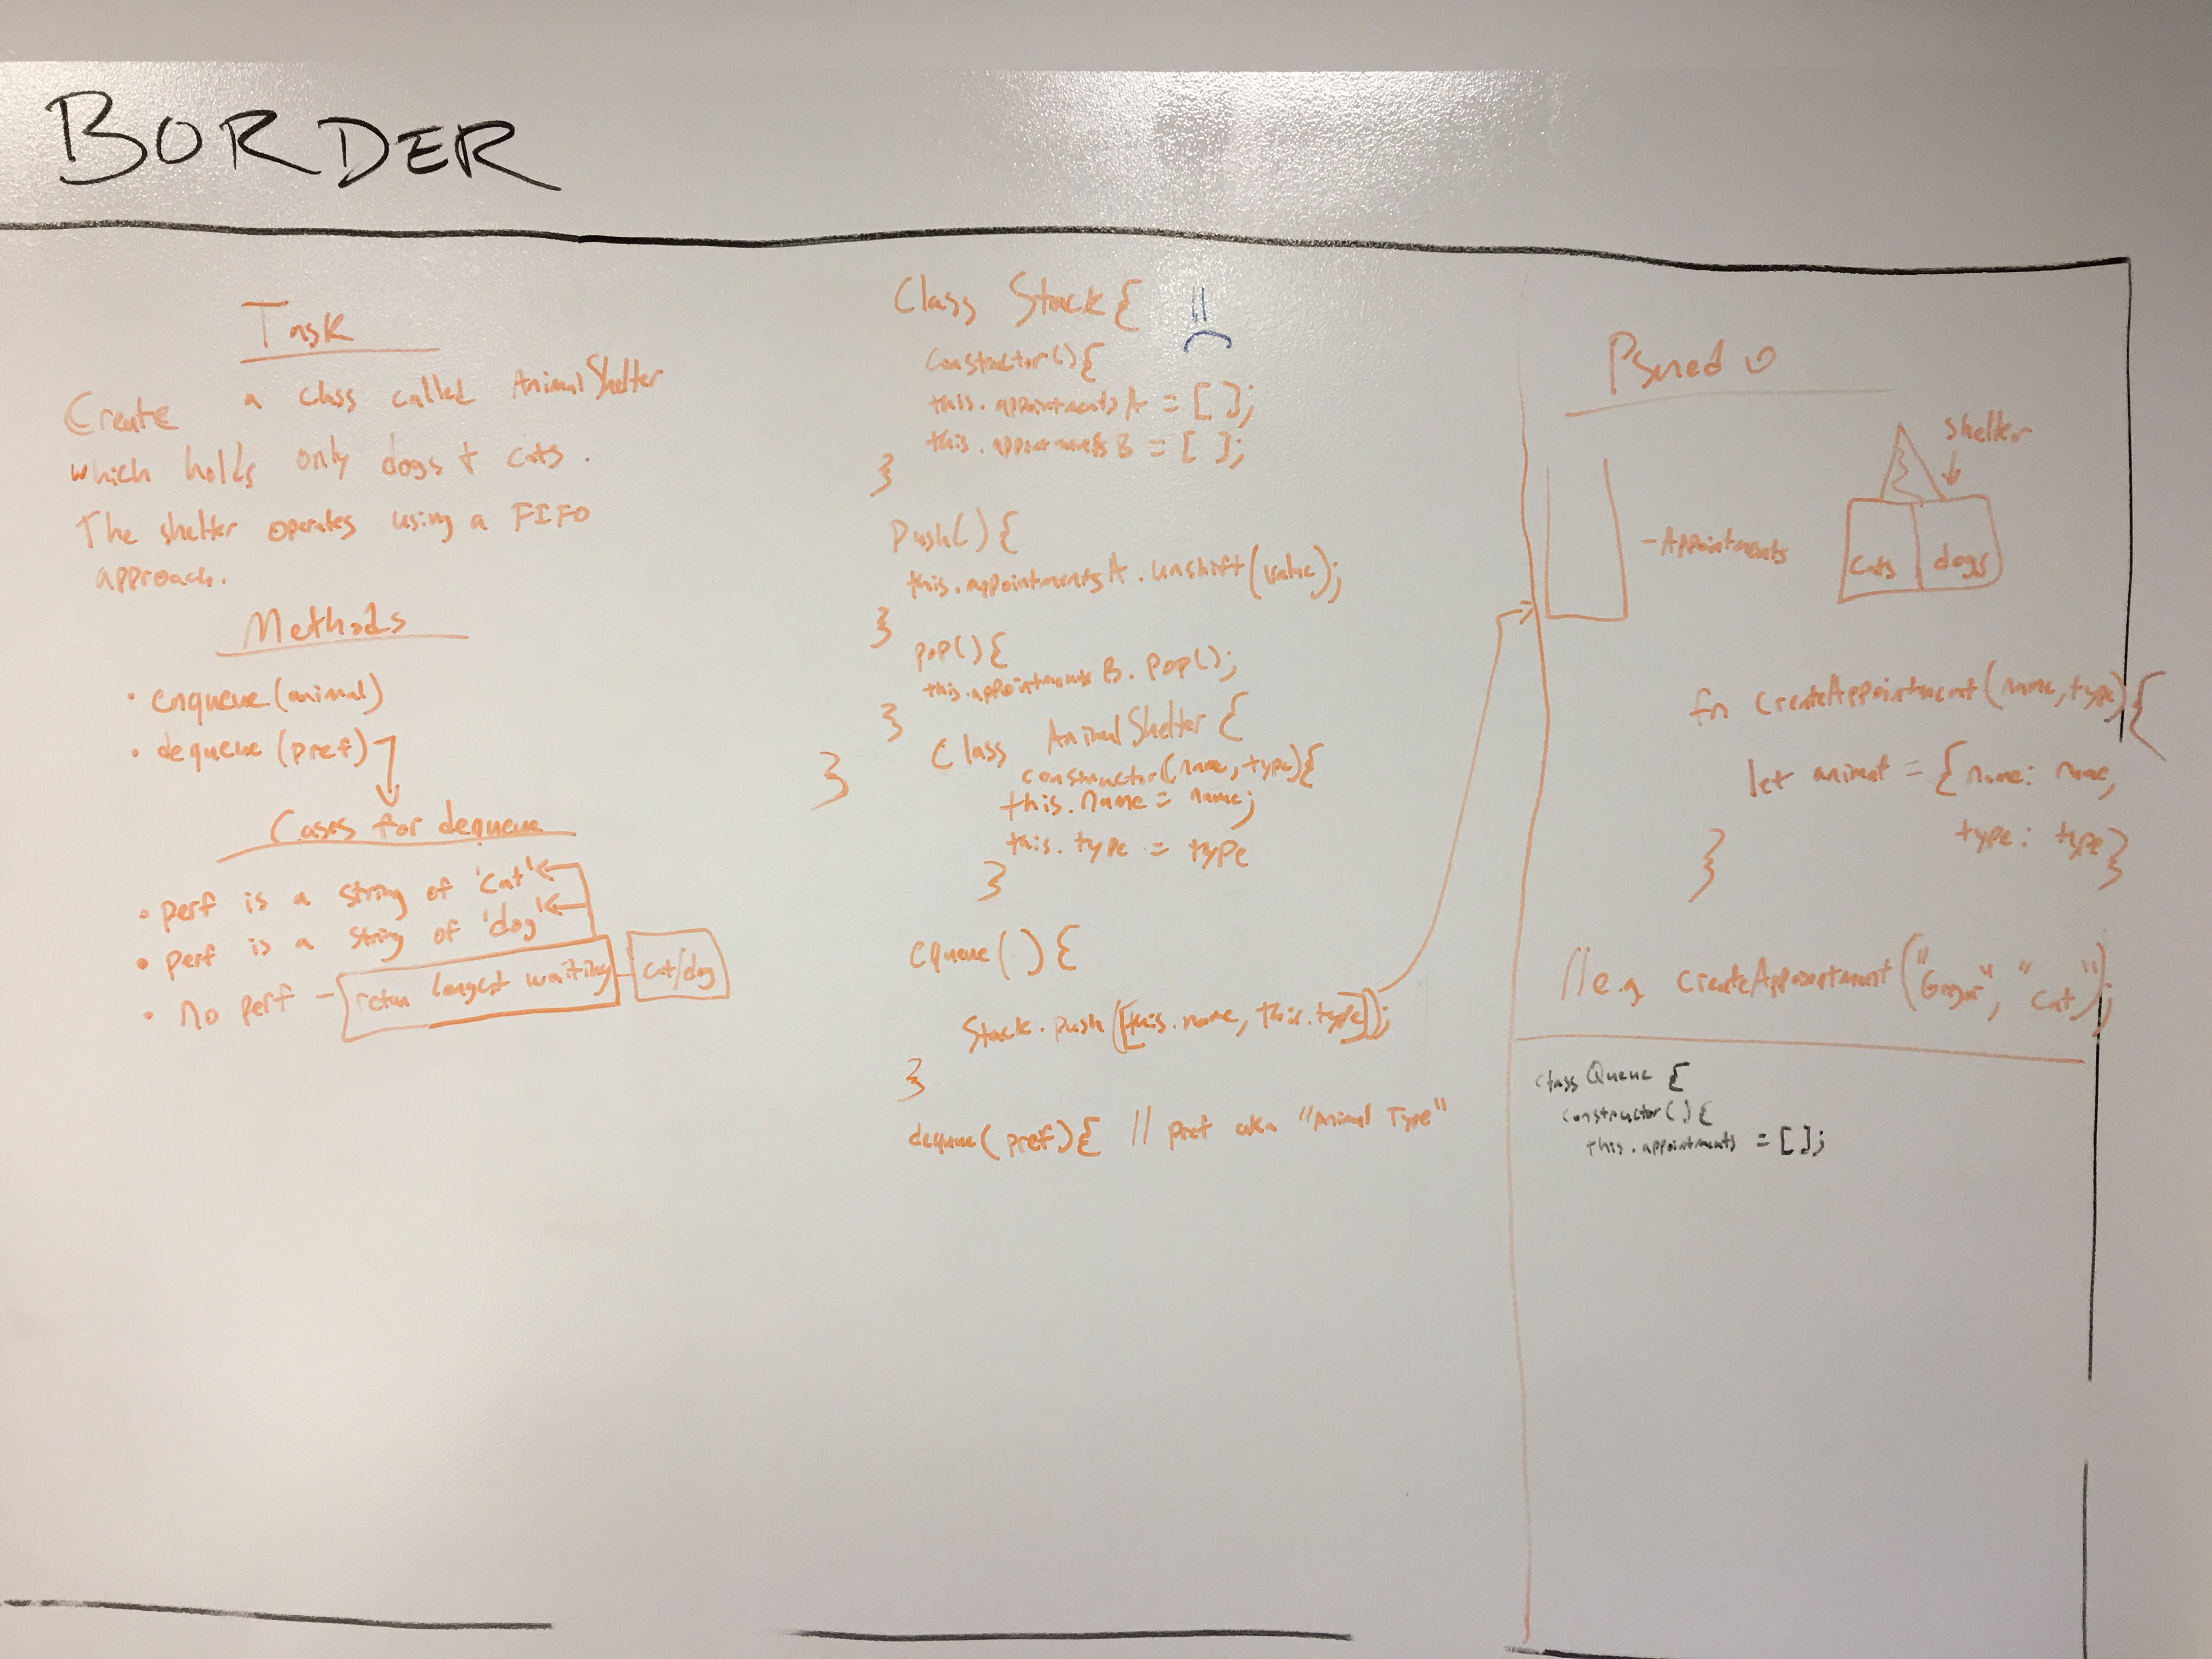 BORDER
Task
Create a class called AnimalShelter
which holds only dogs + cats.
The shelter operates using a FIFO
approach.
Methods
• enqueue(animal)
• dequeue(pref)
Cases for dequeue
• perf is a string of 'cat'
• perf is a string of 'dog'
• no perf - return longest waiting - cat/dog
Class Stack{
constructor(){
this.appointmentsA = [ ];
this.appointmentsB = [ ];
}
Push(){
this.appointmentsA.unshift(value);
}
pop(){
this.appointmentsB.pop();
}
}
Class AnimalShelter {
constructor(name, type){
this.name = name;
this.type = type
}
Stack.push([this.name, this.type]);
}
dequeue(pref){ // pref aka "Animal Type"
shelter
- Appointments
cats dogs
fn createAppointment(name, type){
let animal = {name: name,
type: type}
}
//e.g. createAppointment(" ", "cat");
class Queue {
constructor(){
this.appointments = [];